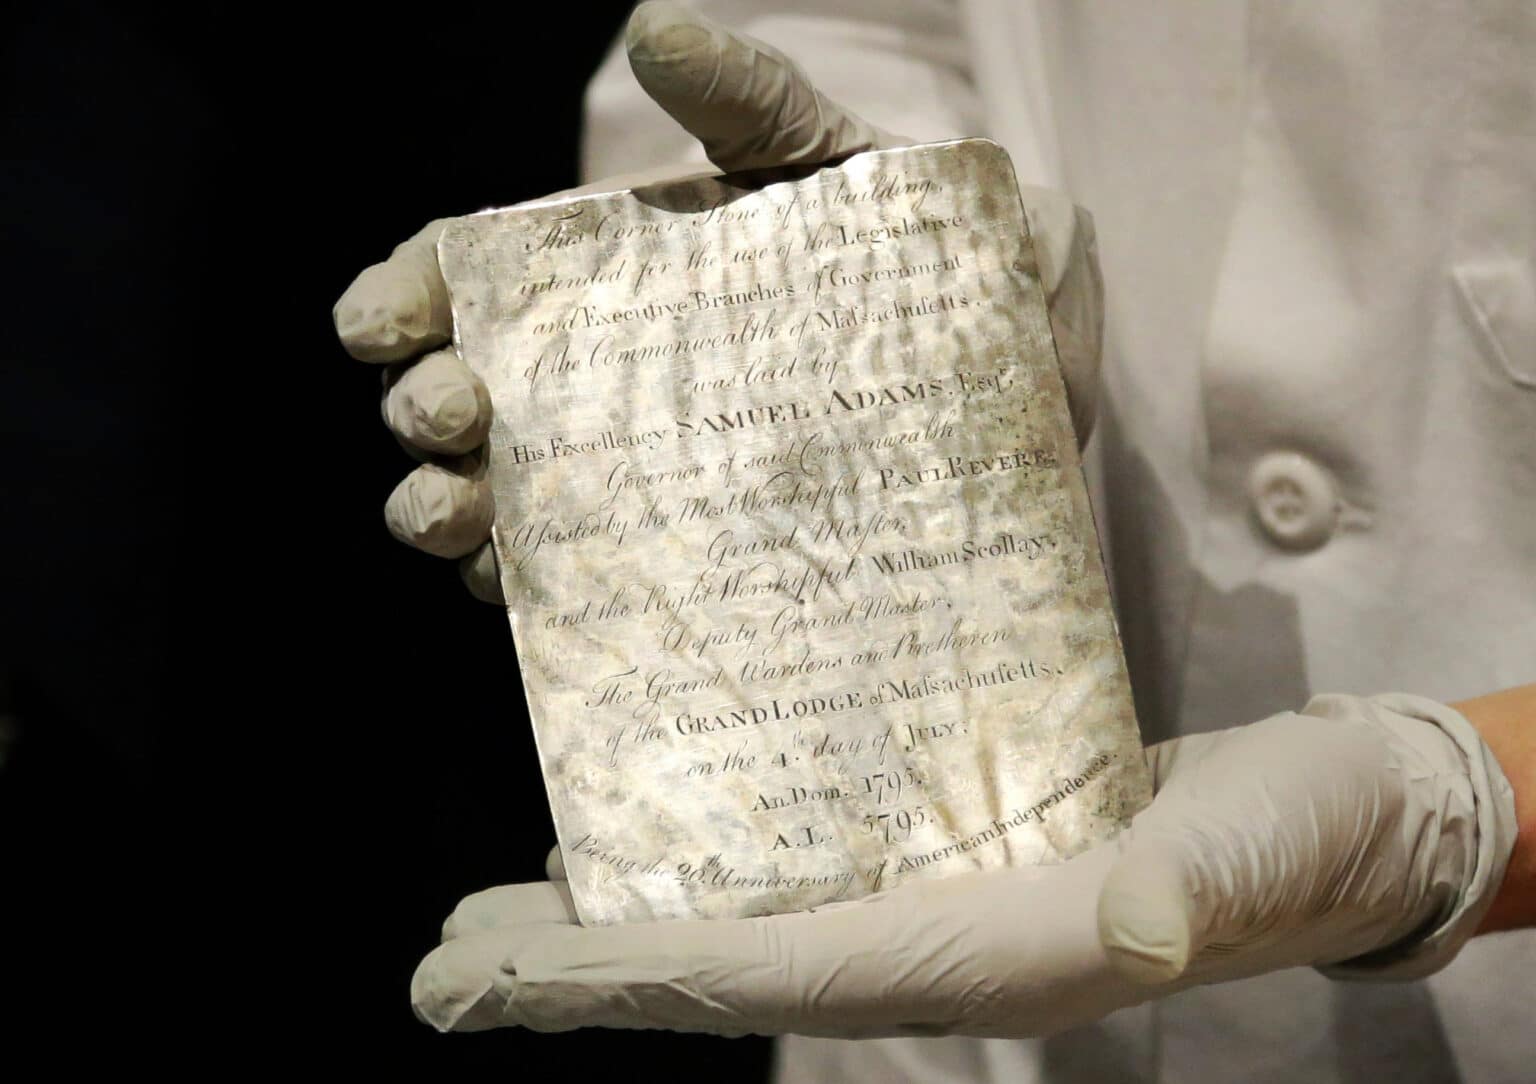 This Corner Stone of a building,
intended for the use of the Legislative
and Executive Branches of Government
of the Commonwealth of Maſsachuſetts.
was laid by
His Excellency SAMUEL ADAMS, Esqr.
Governor of said Commonwealth
Aſsisted by the Most Worshipful PAUL REVERE,
Grand Maſter,
and the Right Worshipful William Scollay,
Deputy Grand Master,
The Grand Wardens and Bretheren
of the GRAND LODGE of Maſsachuſetts,
on the 4th day of JULY,
An. Dom. 1795.
A.L. 5795.
Being the 20th Anniversary of American Independence.